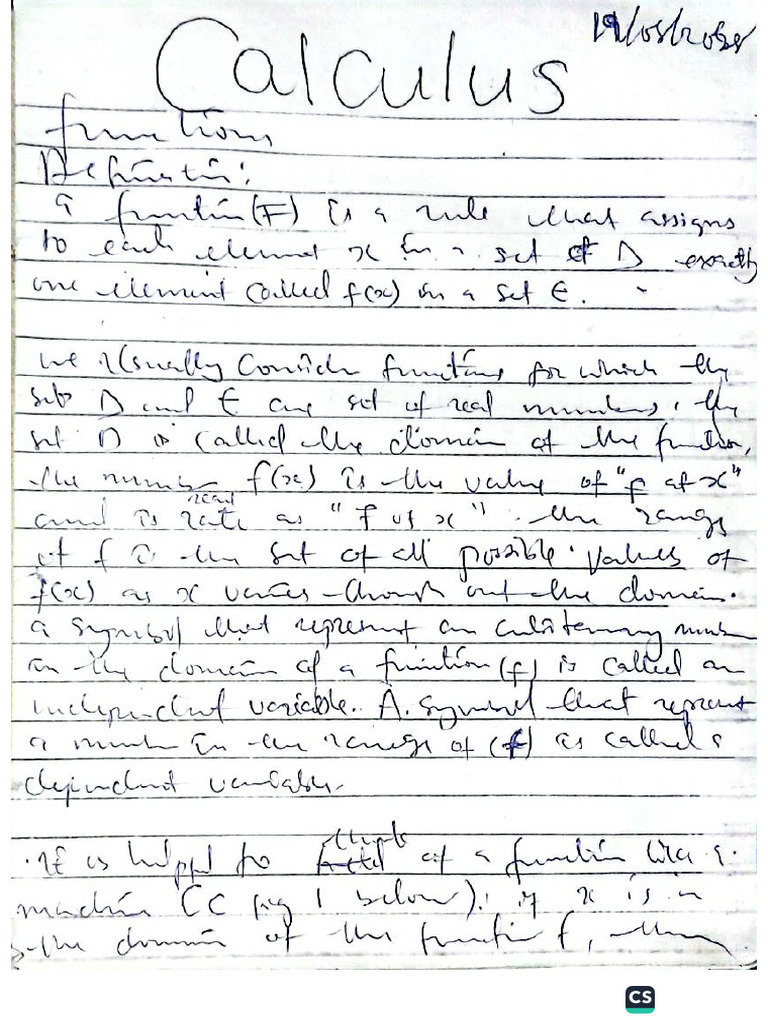 Calculus
functions
Definition:
a function (F) is a rule that assigns
to each element x in a set of D exactly
one element called f(x) in a set E.
we usually consider functions for which the
sets D and E are set of real numbers. the
set D is called the domain of the function,
the number f(x) is the value of "f at x"
read
and is rate as "f of x". the range
of f is the set of all possible values of
f(x) as x varies through out the domain.
a symbol that represent an arbitrary number
in the domain of a function (f) is called an
independent variable. A symbol that represent
a number in the range of (f) is called a
dependent variable.
think
It is helpful to of a function like a
machine (c fig 1 below). if x is in
the domain of the function f, then
CS